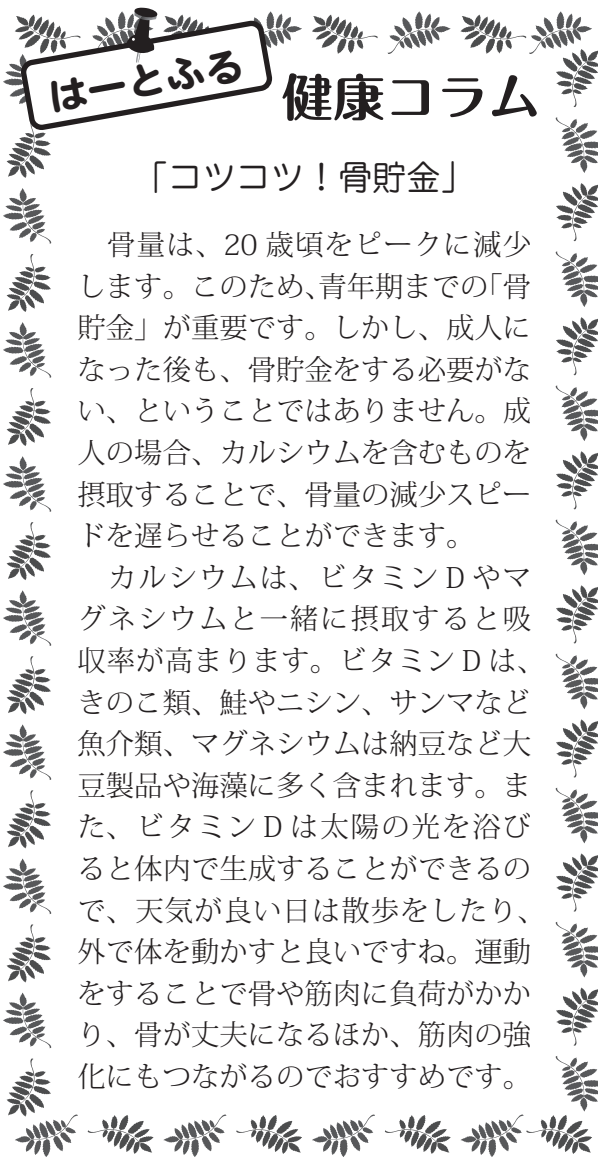 はーとふる
健康コラム
「コツコツ！骨貯金」
　骨量は、20 歳頃をピークに減少
します。このため、青年期までの「骨
貯金」が重要です。しかし、成人に
なった後も、骨貯金をする必要がな
い、ということではありません。成
人の場合、カルシウムを含むものを
摂取することで、骨量の減少スピー
ドを遅らせることができます。
　カルシウムは、ビタミン D やマ
グネシウムと一緒に摂取すると吸
収率が高まります。ビタミン D は、
きのこ類、鮭やニシン、サンマなど
魚介類、マグネシウムは納豆など大
豆製品や海藻に多く含まれます。ま
た、ビタミン D は太陽の光を浴び
ると体内で生成することができるの
で、天気が良い日は散歩をしたり、
外で体を動かすと良いですね。運動
をすることで骨や筋肉に負荷がかか
り、骨が丈夫になるほか、筋肉の強
化にもつながるのでおすすめです。